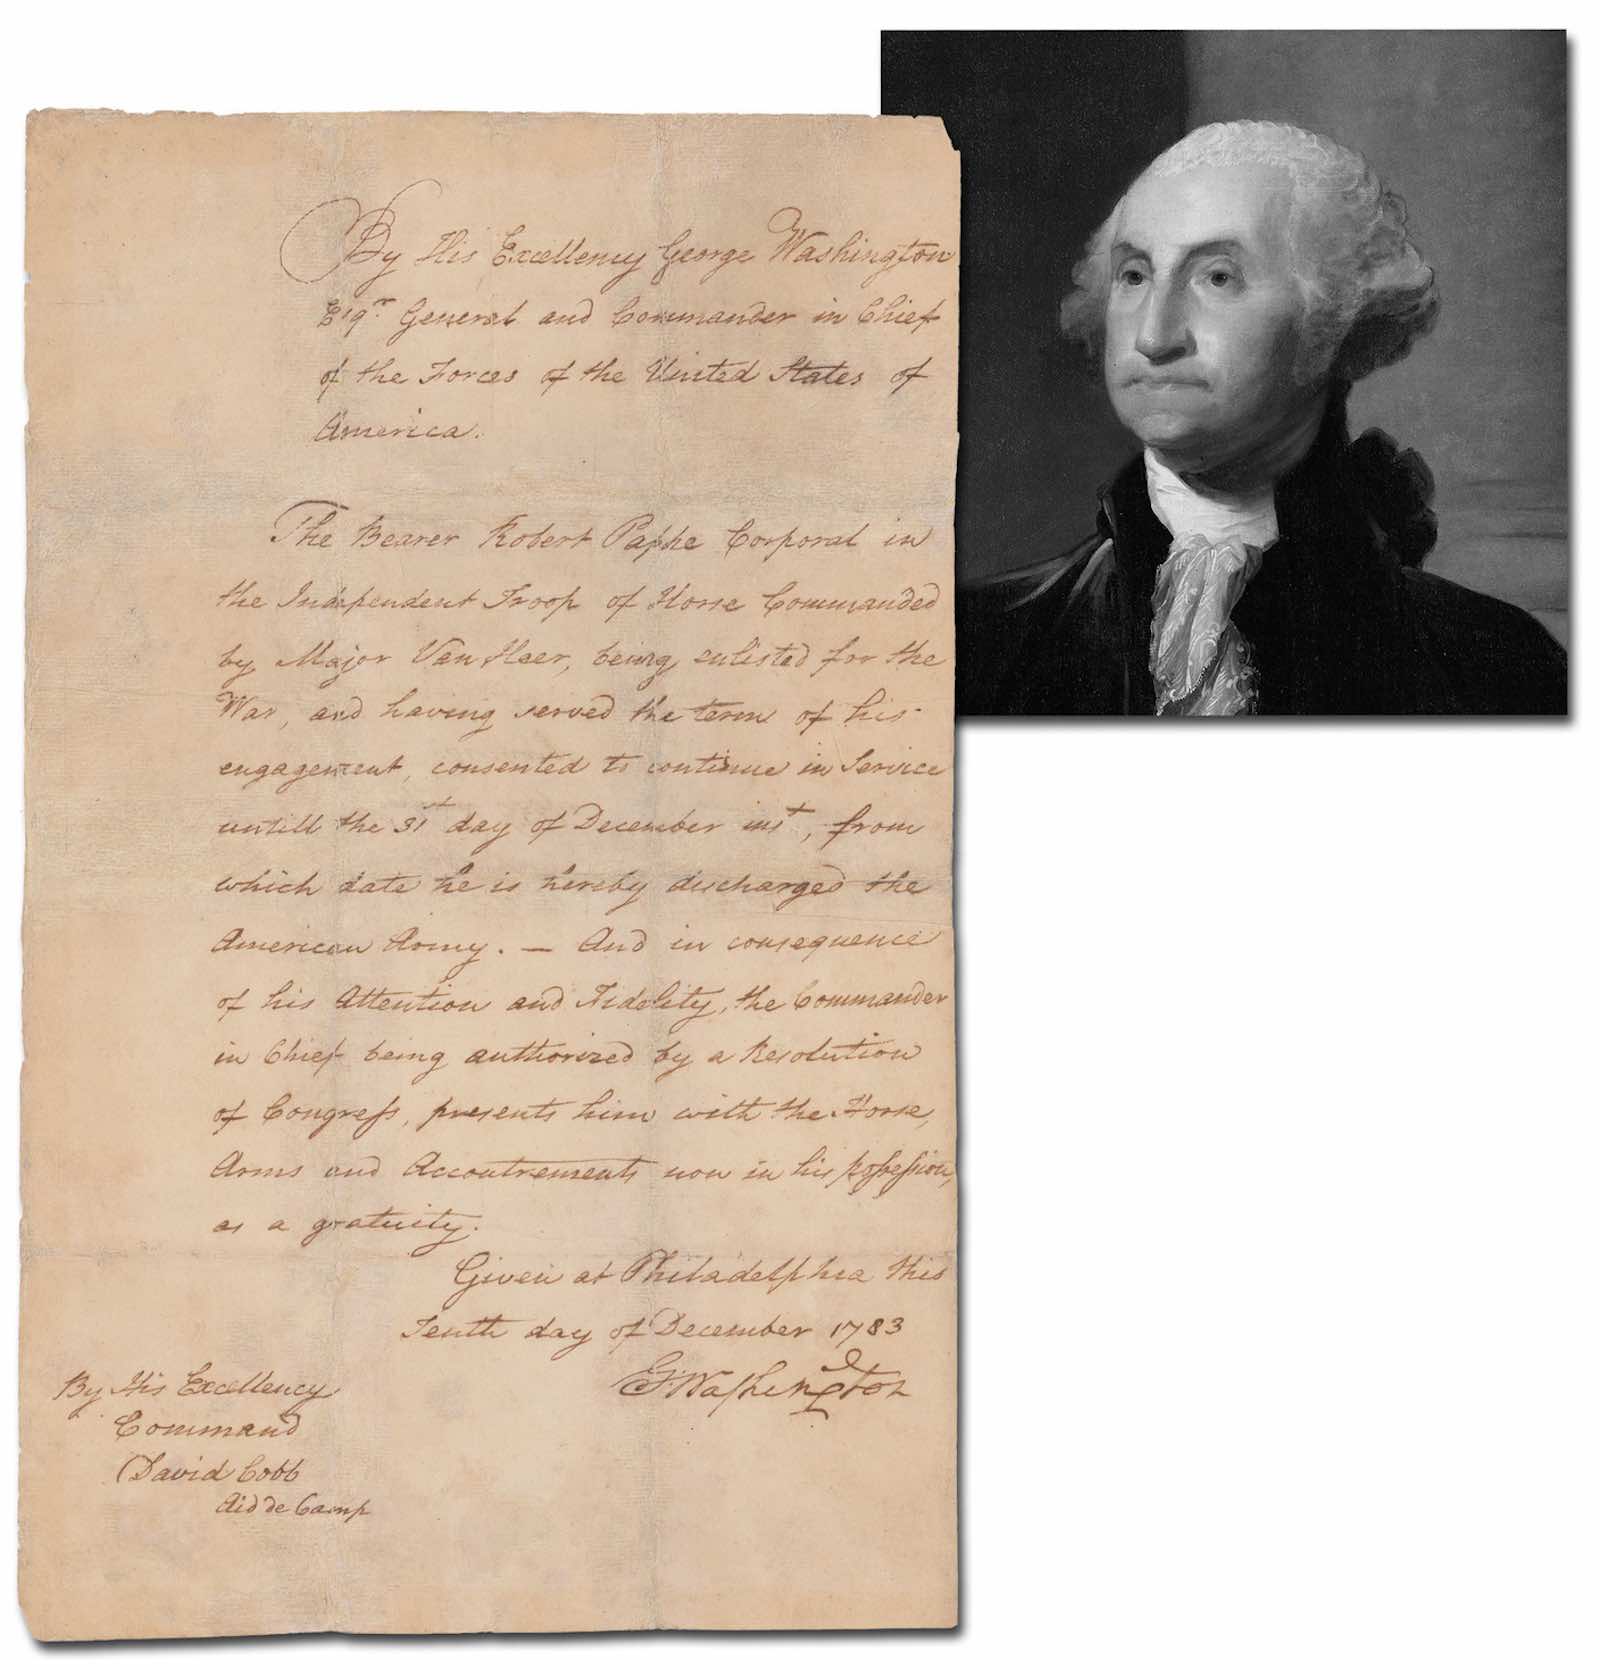 By His Excellency George Washington
Esqr. General and Commander in Chief
of the Forces of the United States of
America.
The Bearer Robert Paphe Corporal in
the Independent Troop of Horse Commanded
by Major Van Heer, being enlisted for the
War, and having served the term of his
engagement, consented to continue in Service
untill the 31st day of December inst, from
which date he is hereby discharged the
American Army. — And in consequence
of his Attention and Fidelity, the Commander
in Chief being authorized by a Resolution
of Congress, presents him with the Horse,
Arms and Accoutrements now in his possession,
as a gratuity.
Given at Philadelphia this
Tenth day of December 1783
Go: Washington
By His Excellency
Command
David Cobb
Aid de Camp